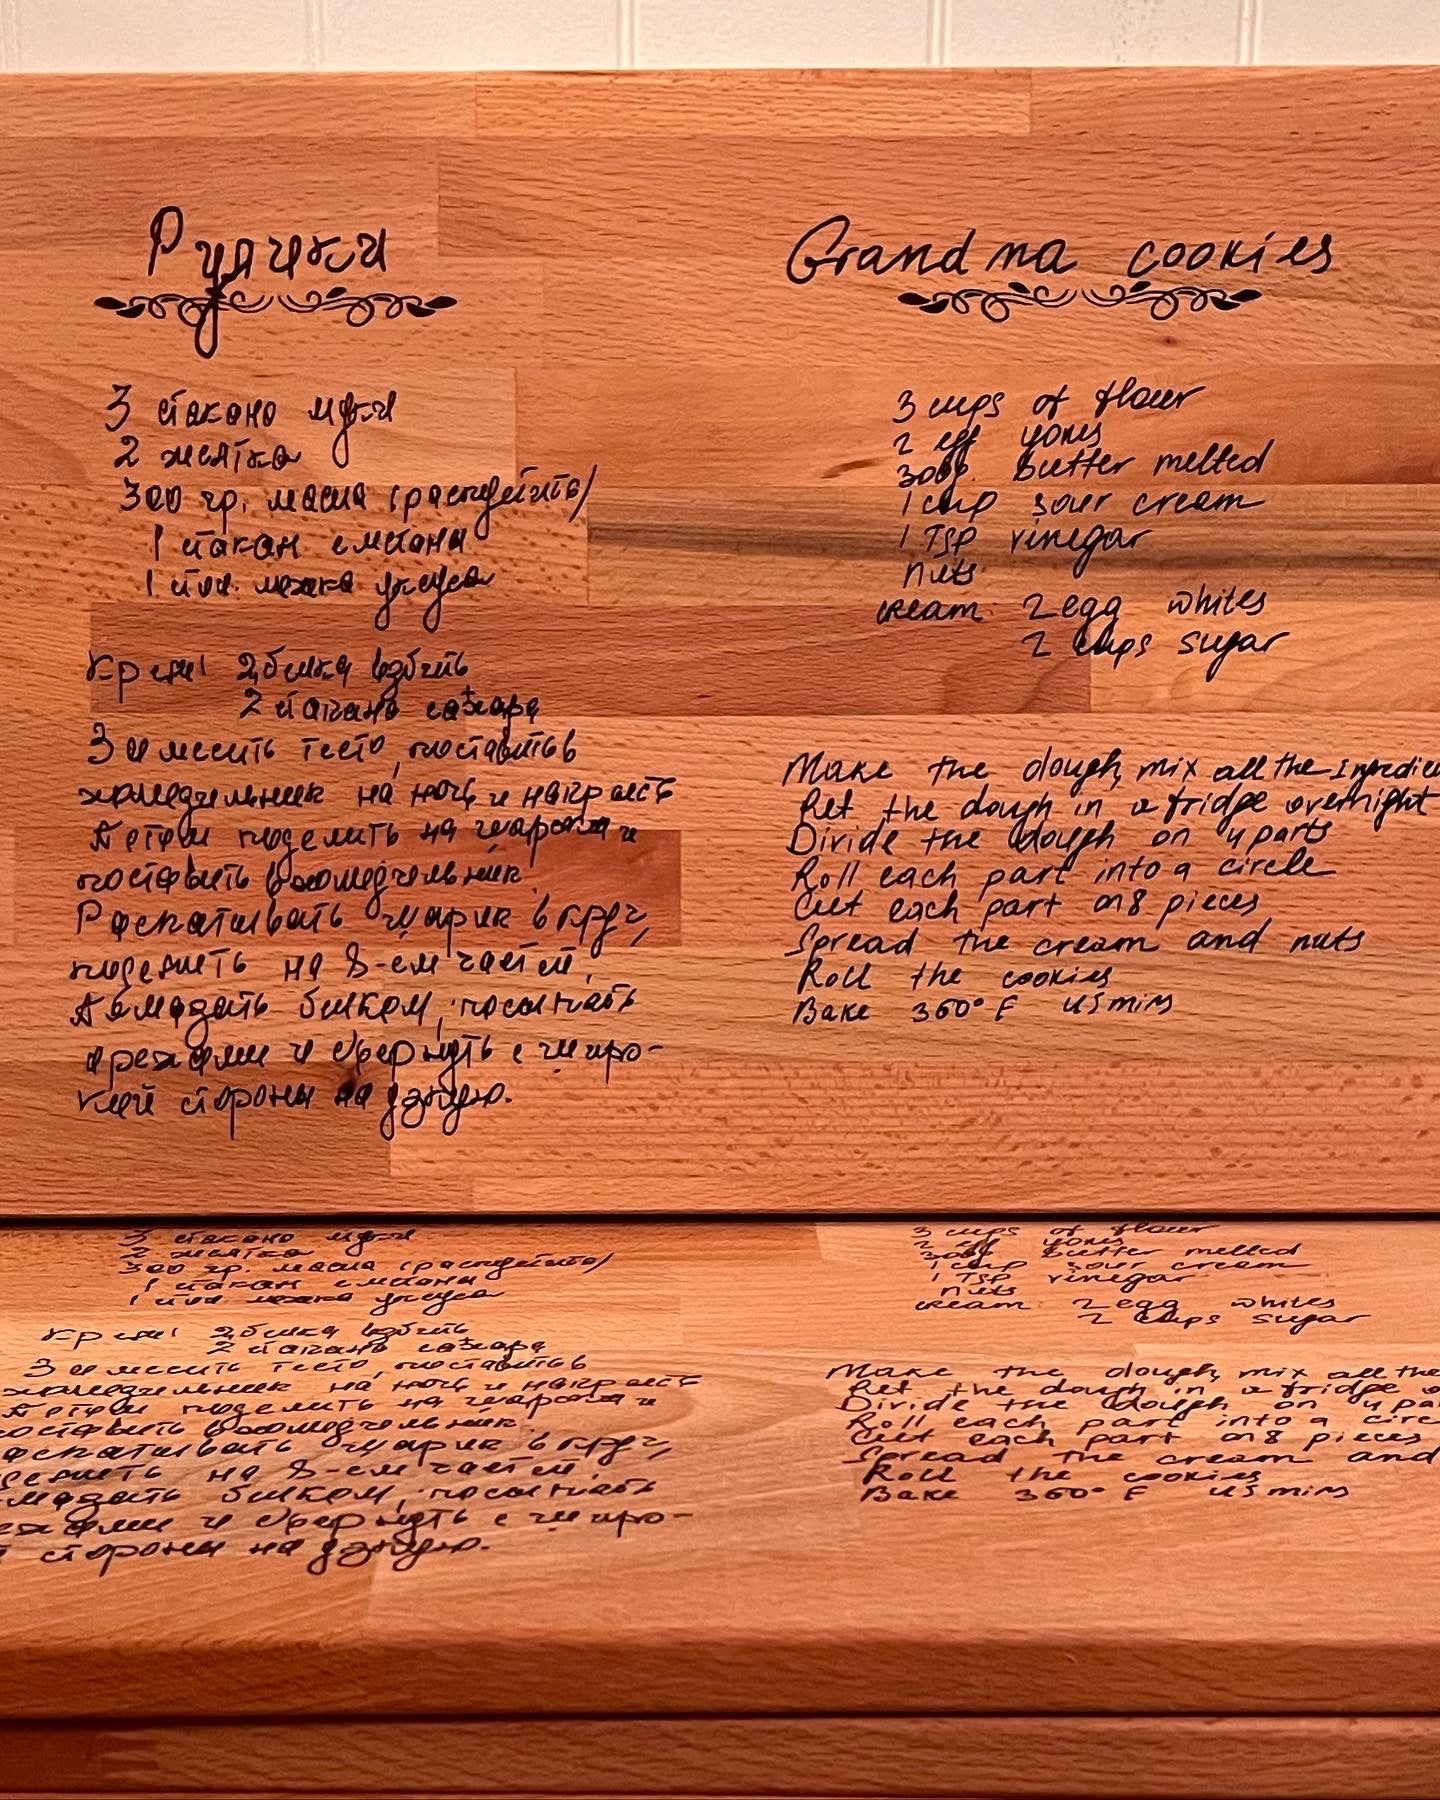 Рулики
3 стакано муки
2 желтка
300 гр. масла (распустить)
1 стакан сметаны
1 стол. ложка уксуса
крем: 2 белка взбить
2 стакано сахара
Замесить тесто, поставить в
холодильник на ночь и
Потом поделить на шарики и
поставить в холодильник.
Раскатывать шарик в круг,
поделить на 8-ем частей,
Помазать белком, посыпать
орехами и свернуть с широ-
кой стороны на узкую.
Grandma cookies
3 cups of flour
2 egg yoks
300g. butter melted
1 cup sour cream
1 Tsp vinegar
nuts
cream: 2 egg whites
2 cups sugar
Make the dough, mix all the Ingredie
Put the dough in a fridge overnight
Divide the dough on 4 parts
Roll each part into a circle
Cut each part on 8 pieces
Spread the cream and nuts
Roll the cookies
Bake 360° F 45 mins
3 стакано муки
2 желтка
300 гр. масла (распустить)
1 стакан сметаны
1 стол. ложка уксуса
крем: 2 белка взбить
2 стакано сахара
Замесить тесто, поставить в
холодильник на ночь и
Потом поделить на шарики и
поставить в холодильник.
шарик в круг,
на 8-ем частей,
белком, посыпать
и свернуть с широ-
й стороны на узкую.
3 cups of flour
2 egg yoks
300g. butter melted
1 cup sour cream
1 Tsp vinegar
nuts
cream 2 egg whites
2 cups sugar
Make the dough, mix all the
Put the dough in a fridge
Divide the dough on 4 pa
Roll each part into a circ
Cut each part on 8 pieces
Spread the cream and
Roll the cookies
Bake 360° F 45 mins